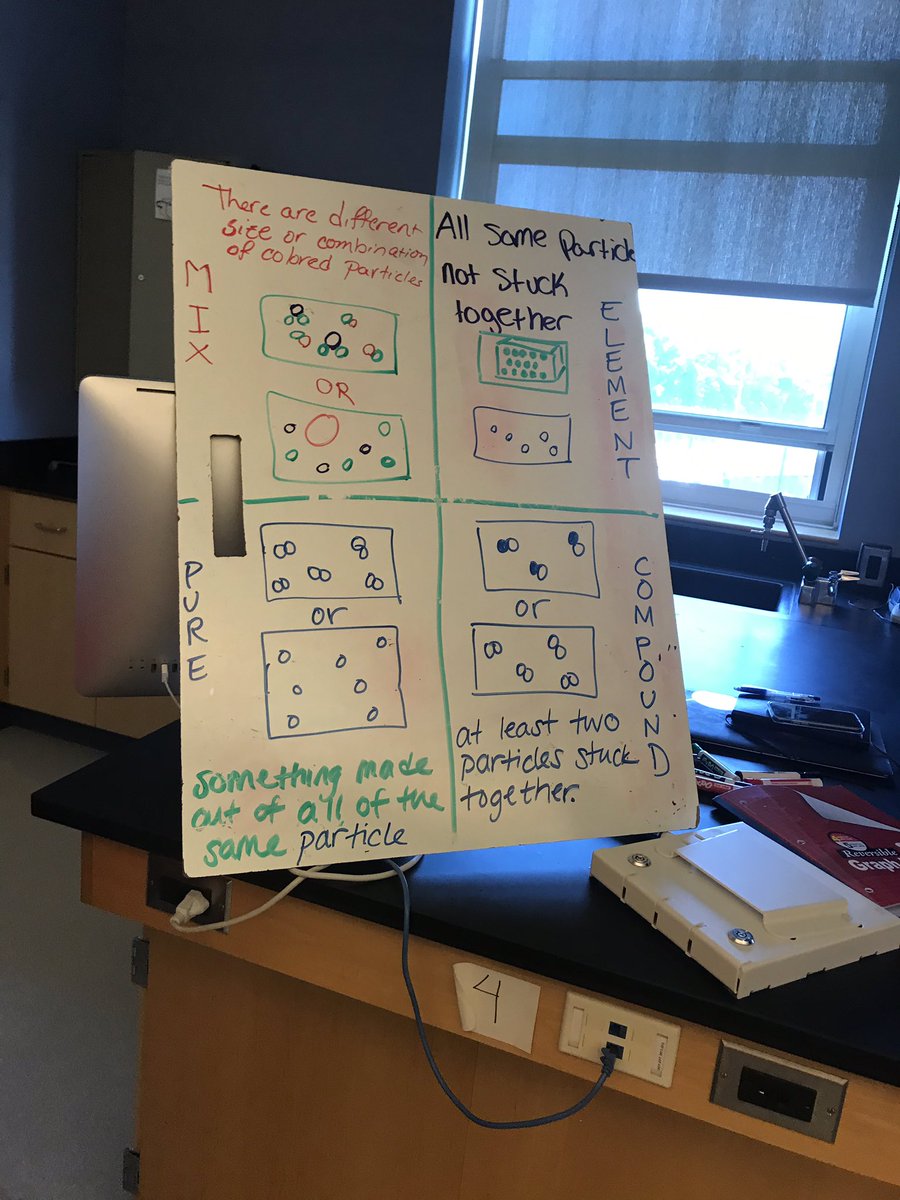 There are different
size or combination
of colored particles
MIX
OR
All same Particle
not stuck
together
ELEMENT
PURE
or
something made
out of all of the
same particle
COMPOUND
or
at least two
particles stuck
together.
4
Reversible
Graph